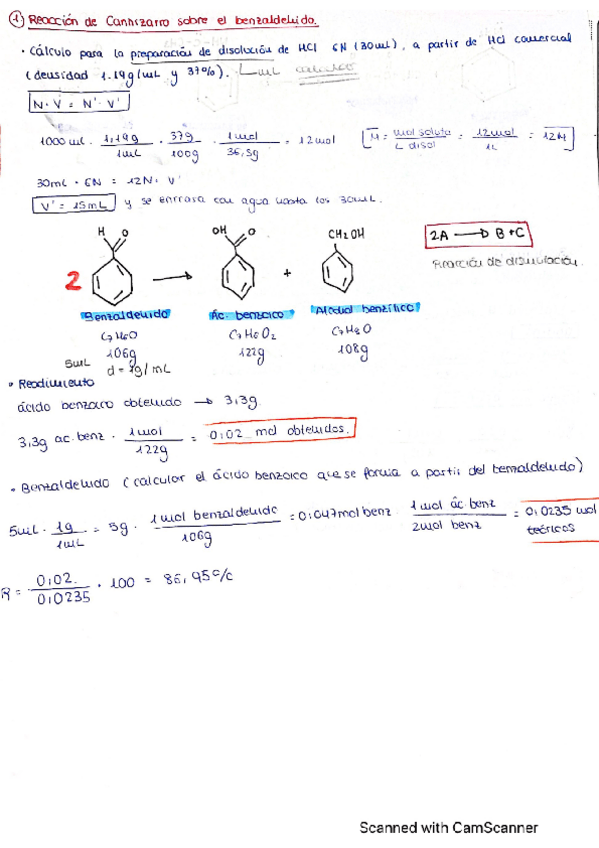 1 Reacción de Cannizarro sobre el benzaldehido.
• Cálculo para la preparación de disolución de HCl 6N (30mL), a partir de HCl comercial
(densidad 1.19g/mL y 37%).
N · V = N' · V'
1000 mL · 1,19g / 1mL · 37g / 100g · 1mol / 36,5g = 12mol [M = mol soluto / L disol = 12mol / 1L = 12M]
30mL · 6N = 12N · V'
V' = 15mL y se enrrasa con agua hasta los 30mL.
H O OH O CH2OH
2A → B + C
2 → +
Reacción de dismutación.
Benzaldehido Ác. benzoico Alcohol benzílico
C7H6O C7H6O2 C7H8O
106g 122g 108g
5mL d = 1g/mL
• Rendimiento
ácido benzoico obtenido → 3,3g.
3,3g ac. benz · 1mol / 122g = 0,02 mol obtenidos.
• Benzaldehido (calcular el ácido benzoico que se forma a partir del benzaldehido)
5mL · 1g / 1mL = 5g · 1mol benzaldehido / 106g = 0,047mol benz · 1mol ác benz / 2mol benz = 0,0235 mol teóricos
R = 0,02 / 0,0235 · 100 = 86,95%
Scanned with CamScanner